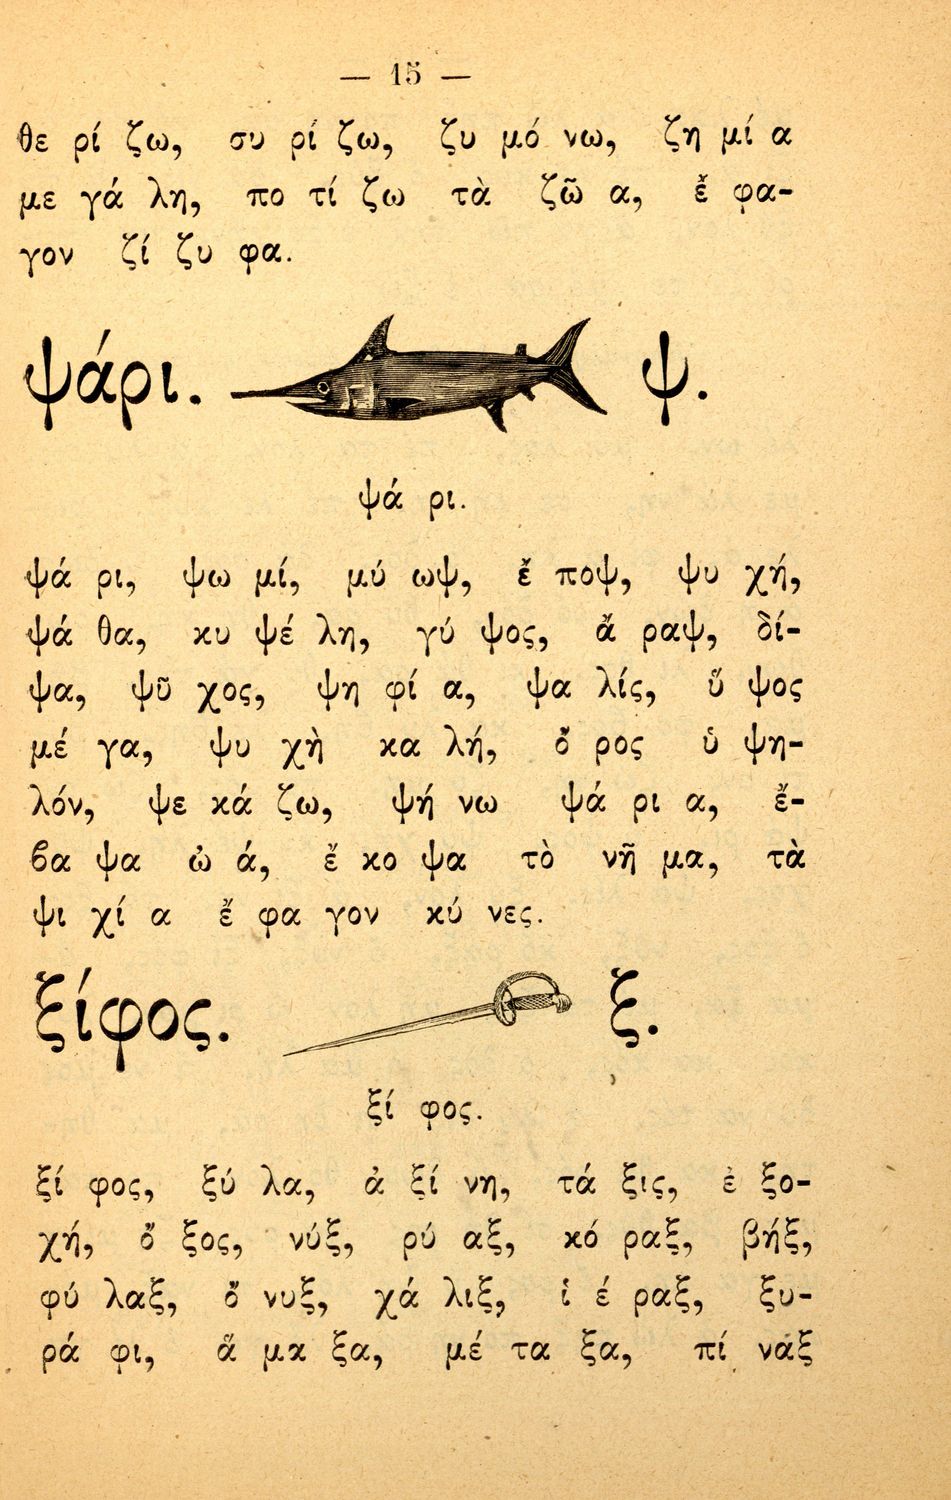 — 15 —
θε ρί ζω, συ ρί ζω, ζυ μό νω, ζη μί α
με γά λη, πο τί ζω τὰ ζῶ α, ἔ φα-
γον ζί ζυ φα.
ψάρι. ψ.
ψά ρι.
ψά ρι, ψω μί, μύ ωψ, ἔ ποψ, ψυ χή,
ψά θα, κυ ψέ λη, γύ ψος, ἄ ραψ, δί-
ψα, ψῦ χος, ψη φί α, ψα λίς, ὕ ψος
μέ γα, ψυ χὴ κα λή, ὄ ρος ὑ ψη-
λόν, ψε κά ζω, ψή νω ψά ρι α, ἔ-
βα ψα ὠ ά, ἔ κο ψα τὸ νῆ μα, τὰ
ψι χί α ἔ φα γον κύ νες.
ξίφος. ξ.
ξί φος.
ξί φος, ξύ λα, ἀ ξί νη, τά ξις, ἐ ξο-
χή, ὄ ξος, νύξ, ρύ αξ, κό ραξ, βήξ,
φύ λαξ, ὄ νυξ, χά λιξ, ἱ έ ραξ, ξυ-
ρά φι, ἅ μα ξα, μέ τα ξα, πί ναξ